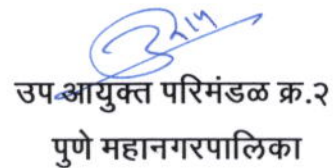 उप आयुक्त परिमंडळ क्र.२
पुणे महानगरपालिका